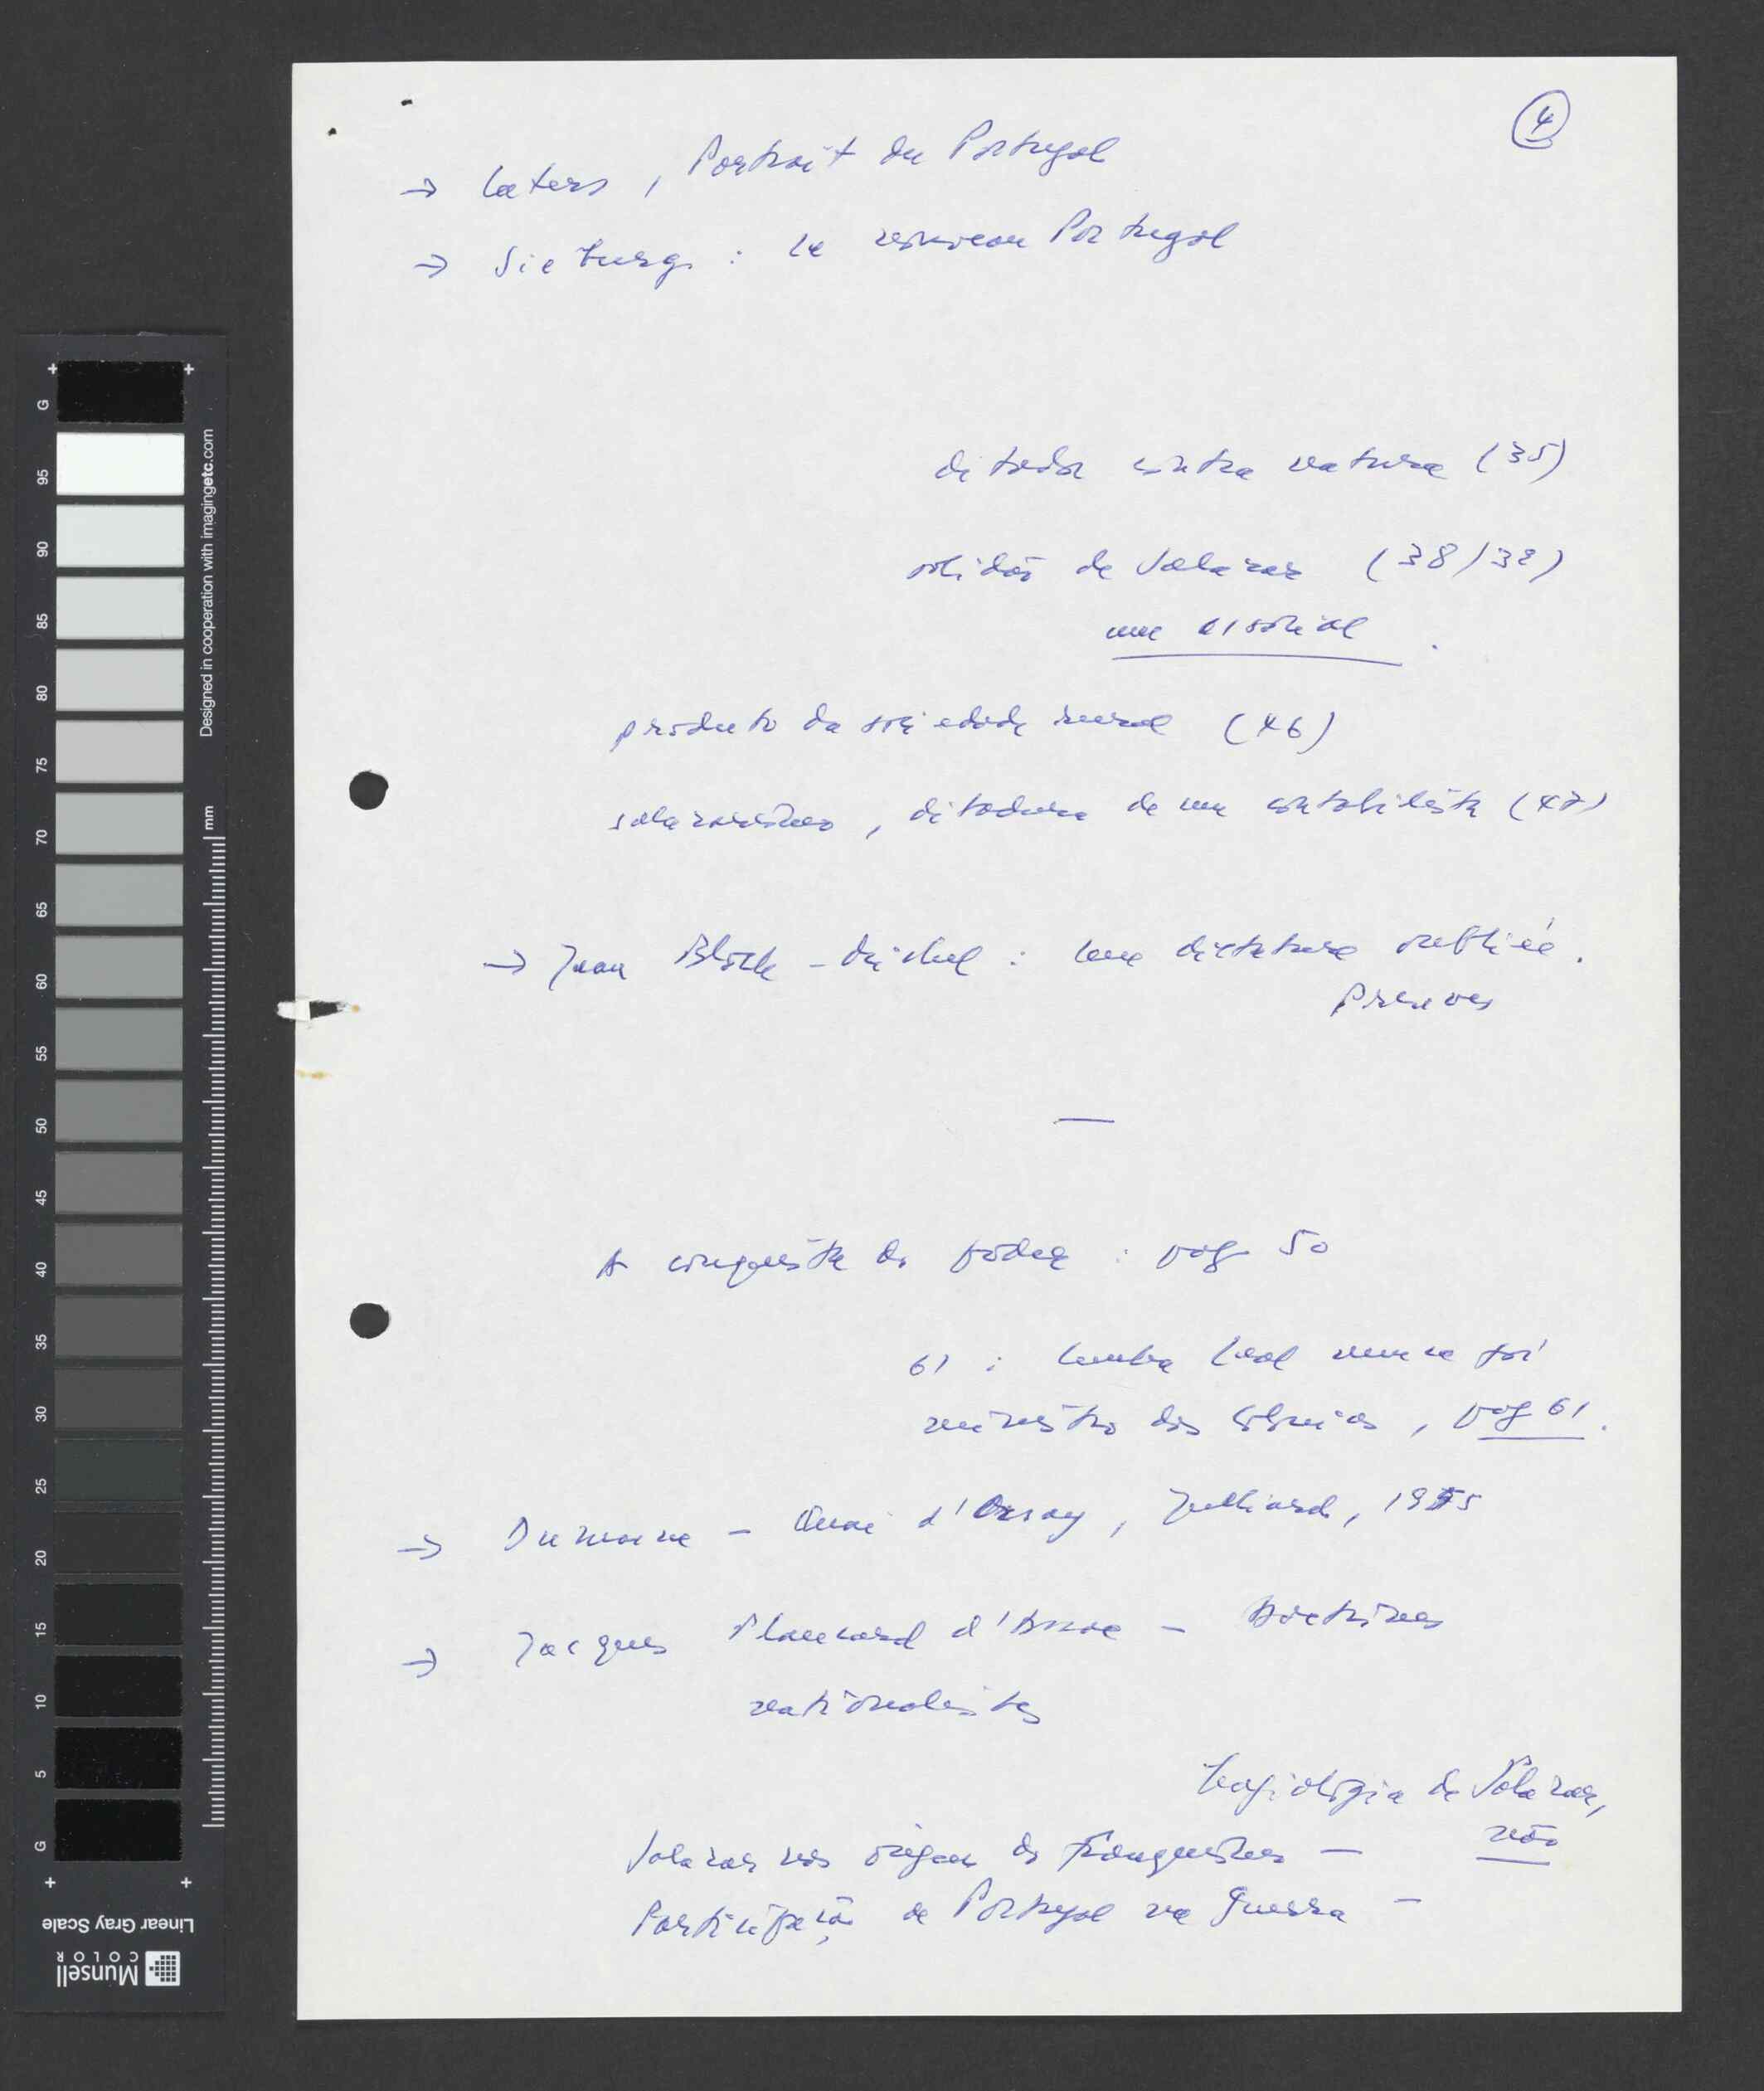 4
→ Caters, Portrait du Portugal
→ Sieburg : Le nouveau Portugal
ditador contra natura (35)
solidão de Salazar (38/39)
um associal.
produto da sociedade rural (46)
salazarismo, ditadura de um contabilista (47)
→ Jean Bloch-Michel : Une dictature oubliée.
Preuves
—
A conquista do poder : pag 50
61 : Cunha Leal nunca foi
ministro das Colónias, pag 61.
→ Dumaine - Quai d'Orsay, Julliard, 1955
→ Jacques Ploncard d'Assac - Doctrines
nationalistes
hagiologia de Salazar,
não
Salazar nas origens do franquismo —
Participação de Portugal na Guerra —
G
95
90
85
80
75
70
65
60
55
50
45
40
35
30
25
20
15
10
5
G
Designed in cooperation with imagingetc.com
mm
Linear Gray Scale
Munsell
COLOR